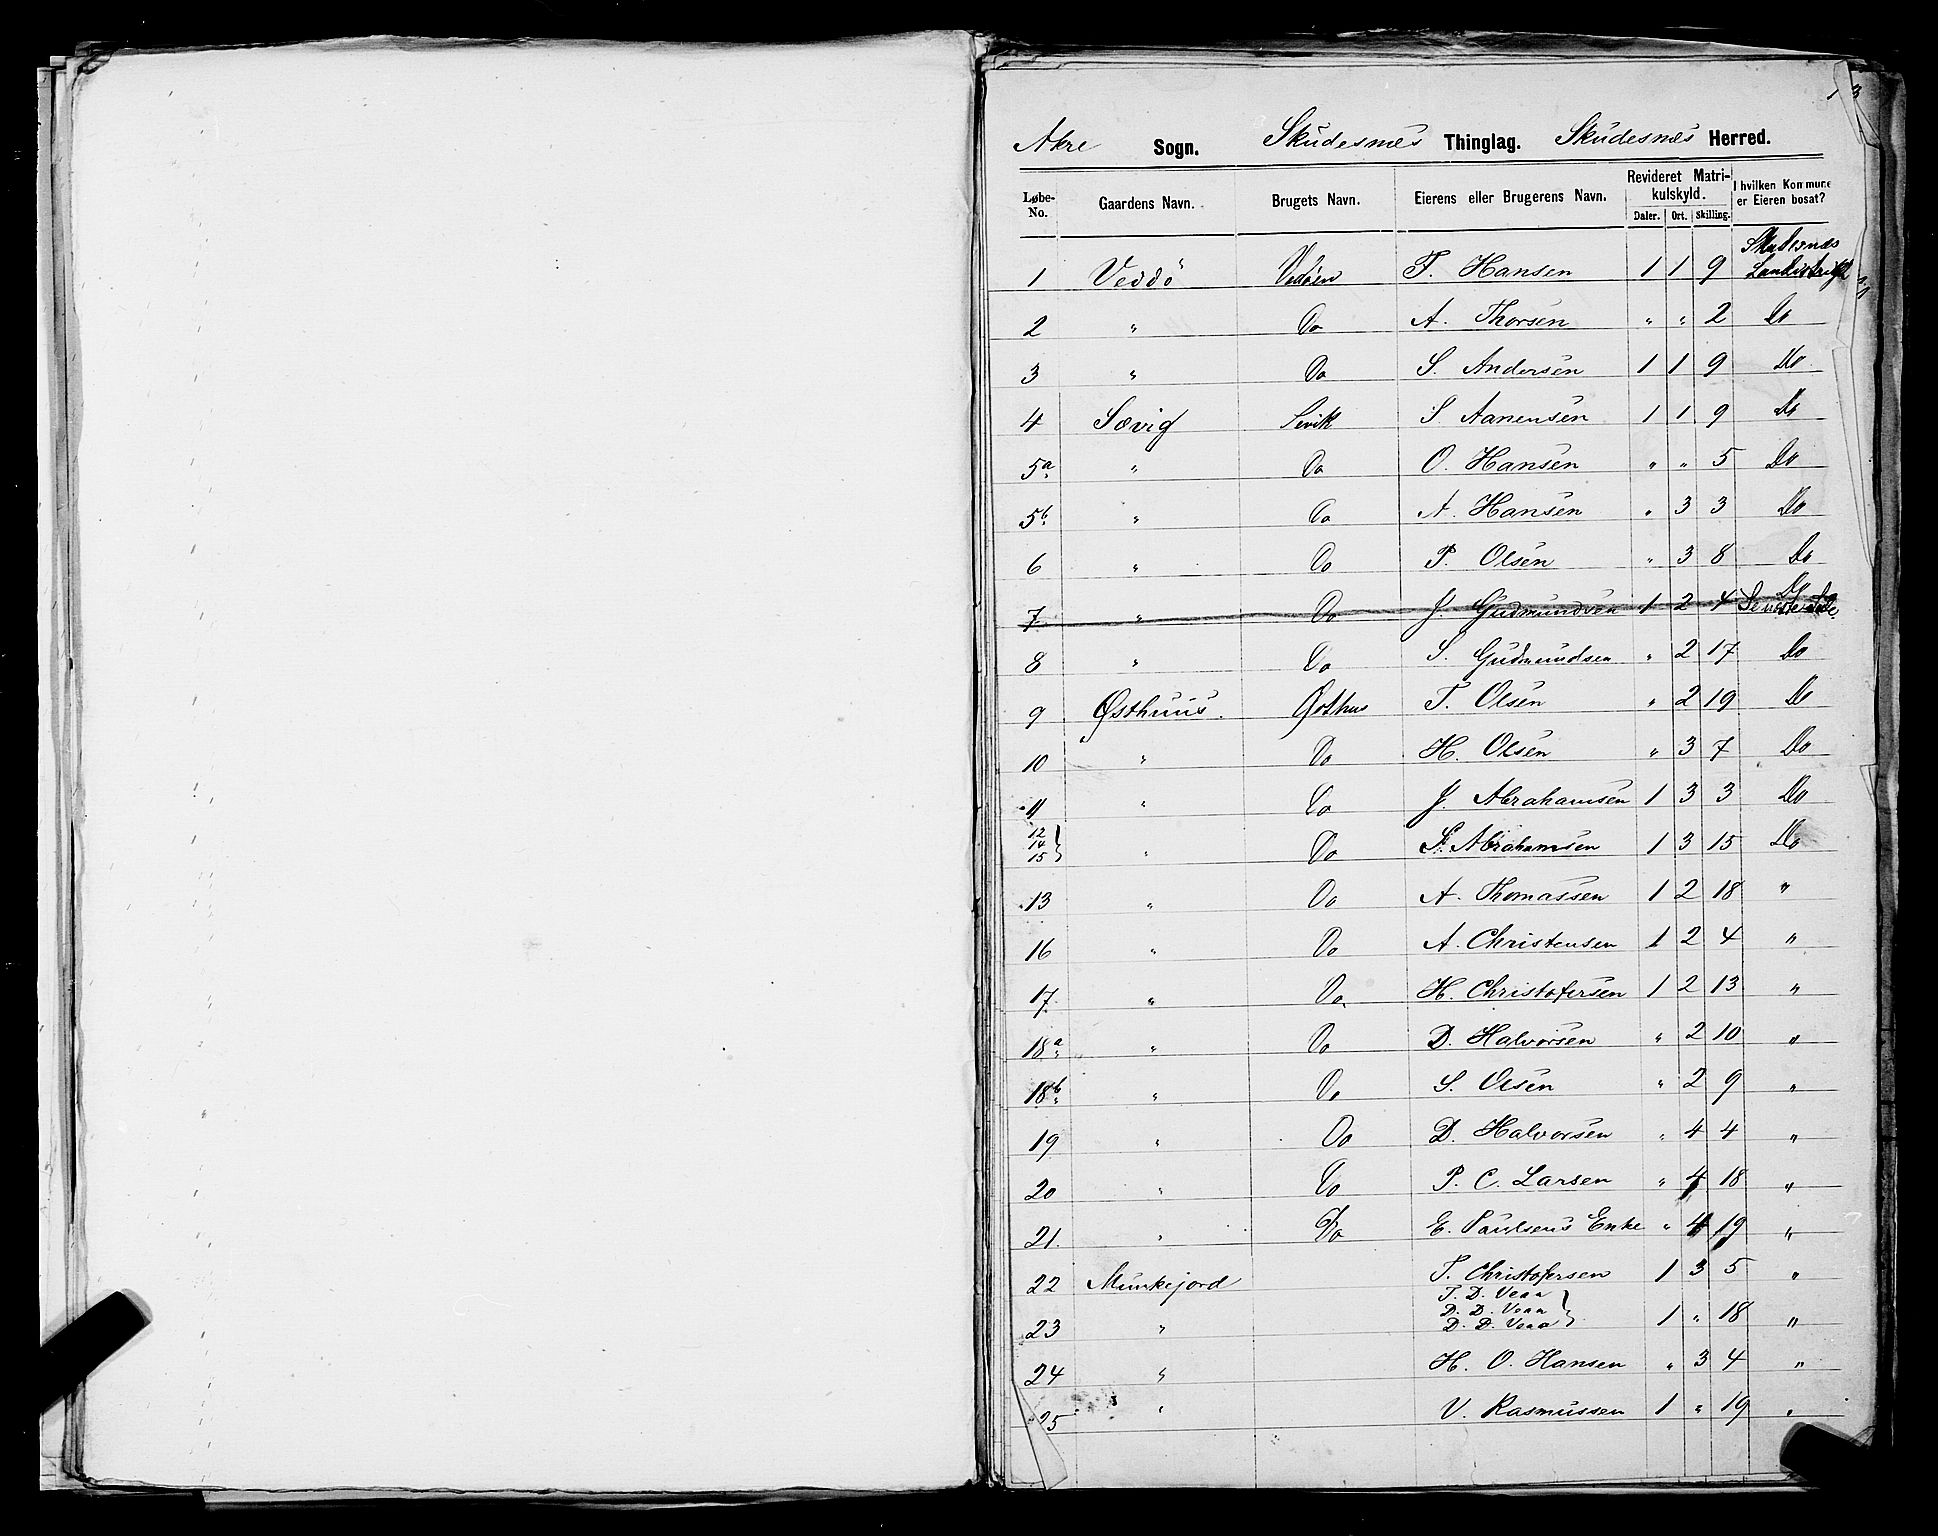 13
Akre Sogn. Skudesnæs Thinglag. Skudesnæs Herred.
Løbe-No. Gaardens Navn. Brugets Navn. Eierens eller Brugerens Navn. Revideret Matrikulskyld. I hvilken Kommune er Eieren bosat?
Daler. Ort. Skilling.
1 Veddö Vedöen T. Hansen 1 1 9 Skudesnæs Landistrigt
2 " Do A. Thorsen " " 2 Do
3 " Do S. Andersen 1 1 9 Do
4 Sævig Sevik S Aanensen 1 1 9 Do
5a " Do O. Hansen " " 5 Do
5b " Do A. Hansen " 3 3 Do
6 " Do P. Olsen " 3 8 Do
7 " Do J. Gudmundsen 1 2 4 Do
8 " Do S. Gudmundsen " 2 17 Do
9 Østhuus. Østhus T. Olsen " 2 19 Do
10 " Do H. Olsen " 3 7 Do
11 " Do J. Abrahamsen 1 3 3 Do
12 14 15 } " Do S. Abrahamsen 1 3 15 Do
13 " Do A. Thomassen 1 2 18 "
16 " Do A. Christensen 1 2 4 "
17 " Do H. Christofersen 1 2 13 "
18a " Do D. Halvorsen " 2 10 "
18b " Do S. Olsen " 2 9 "
19 " Do D. Halvorsen " 4 4 "
20 " Do P. C. Larsen " 4 18 "
21. " Do E. Paulsens Enke " 4 19 "
22 Munkejord T. Christofersen 1 3 5 "
T. D. Veaa
D. D. Veaa }
23 " D. D. Veaa 1 " 18 "
24 " H. O. Hansen " 3 4 "
25 " V. Rasmussen 1 " 19 "